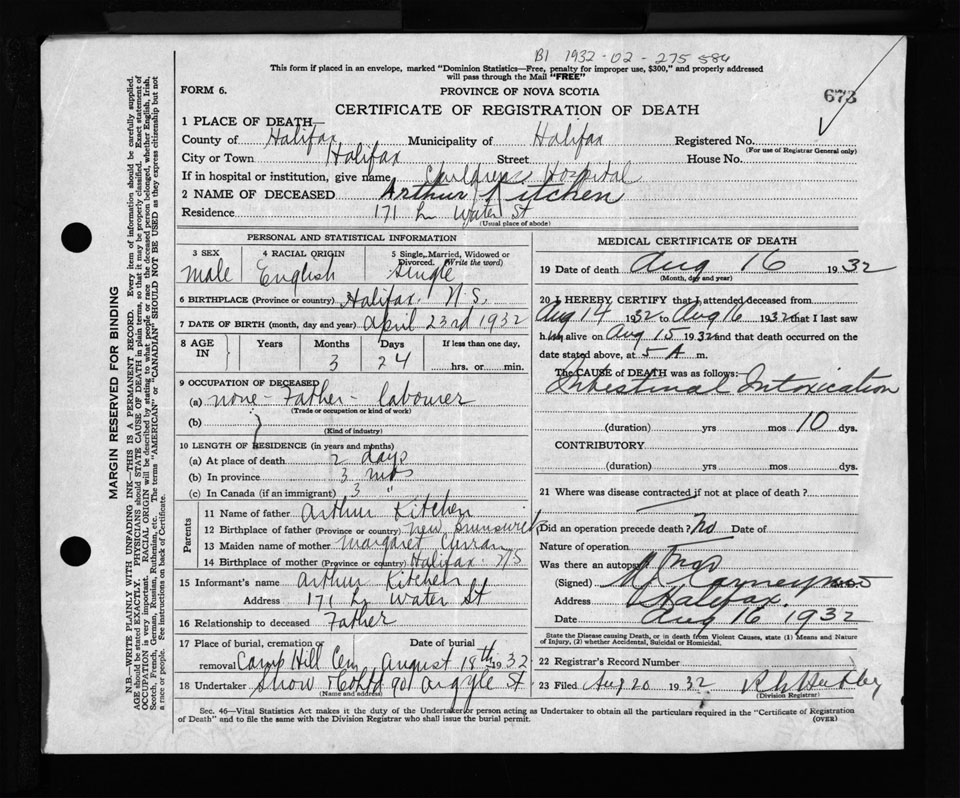 B1 1932-02-275 584
This form if placed in an envelope, marked "Dominion Statistics—Free, penalty for improper use, $300," and properly addressed
will pass through the Mail "FREE"
FORM 6.
PROVINCE OF NOVA SCOTIA
673
CERTIFICATE OF REGISTRATION OF DEATH
1 PLACE OF DEATH—
County of Halifax Municipality of Halifax Registered No.
(For use of Registrar General only)
City or Town Halifax Street House No.
If in hospital or institution, give name Childrens Hospital
2 NAME OF DECEASED Arthur Kitchen
Residence 171 Water St
(Usual place of abode)
PERSONAL AND STATISTICAL INFORMATION
3 SEX 4 RACIAL ORIGIN 5 Single, Married, Widowed or Divorced. (Write the word)
male English Single
6 BIRTHPLACE (Province or country) Halifax N.S.
7 DATE OF BIRTH (month, day and year) April 23rd 1932
8 AGE IN Years Months Days If less than one day,
3 24 hrs. or min.
9 OCCUPATION OF DECEASED
(a) none - Father - labourer
(Trade or occupation or kind of work)
(b)
(Kind of industry)
10 LENGTH OF RESIDENCE (in years and months)
(a) At place of death 2 days
(b) In province 3 mos
(c) In Canada (if an immigrant) 3 "
Parents
11 Name of father Arthur Kitchen
12 Birthplace of father (Province or country) New Brunswick
13 Maiden name of mother Margaret Curran
14 Birthplace of mother (Province or country) Halifax NS
15 Informant's name Arthur Kitchen
Address 171 Water St
16 Relationship to deceased Father
17 Place of burial, cremation or removal Camp Hill Cem Date of burial August 18th 1932
18 Undertaker Snow & Co Ltd 90 Argyle St
(Name and address)
MEDICAL CERTIFICATE OF DEATH
19 Date of death Aug 16 1932
(Month, day and year)
20 I HEREBY CERTIFY that I attended deceased from
Aug 14 1932 to Aug 16 1932 that I last saw
him alive on Aug 15 1932 and that death occurred on the
date stated above, at 5 A m.
The CAUSE of DEATH was as follows:
Intestinal Intoxication
(duration) yrs mos 10 dys.
CONTRIBUTORY
(duration) yrs mos dys.
21 Where was disease contracted if not at place of death?
Did an operation precede death? No Date of
Nature of operation
Was there an autopsy
(Signed) Carney
Address Halifax
Date Aug 16 1932
State the Disease causing Death, or in death from Violent Causes, state (1) Means and Nature
of Injury, (2) whether Accidental, Suicidal or Homicidal.
22 Registrar's Record Number
23 Filed Aug 20 1932
(Division Registrar)
Sec. 46—Vital Statistics Act makes it the duty of the Undertaker or person acting as Undertaker to obtain all the particulars required in the "Certificate of Registration
of Death" and to file the same with the Division Registrar who shall issue the burial permit.
(OVER)
MARGIN RESERVED FOR BINDING
N.B.—WRITE PLAINLY WITH UNFADING INK—THIS IS A PERMANENT RECORD. Every item of information should be carefully supplied.
AGE should be stated EXACTLY. PHYSICIANS should STATE CAUSE OF DEATH in plain terms, so that it may be properly classified. Exact statement of
OCCUPATION is very important. RACIAL ORIGIN will be described by stating to what people or race the deceased person belonged, whether English, Irish,
Scotch, French, German, Russian, Ruthenian, etc. The terms "AMERICAN" or "CANADIAN" SHOULD NOT BE USED as they express citizenship but not
a race or people. See instructions on back of Certificate.